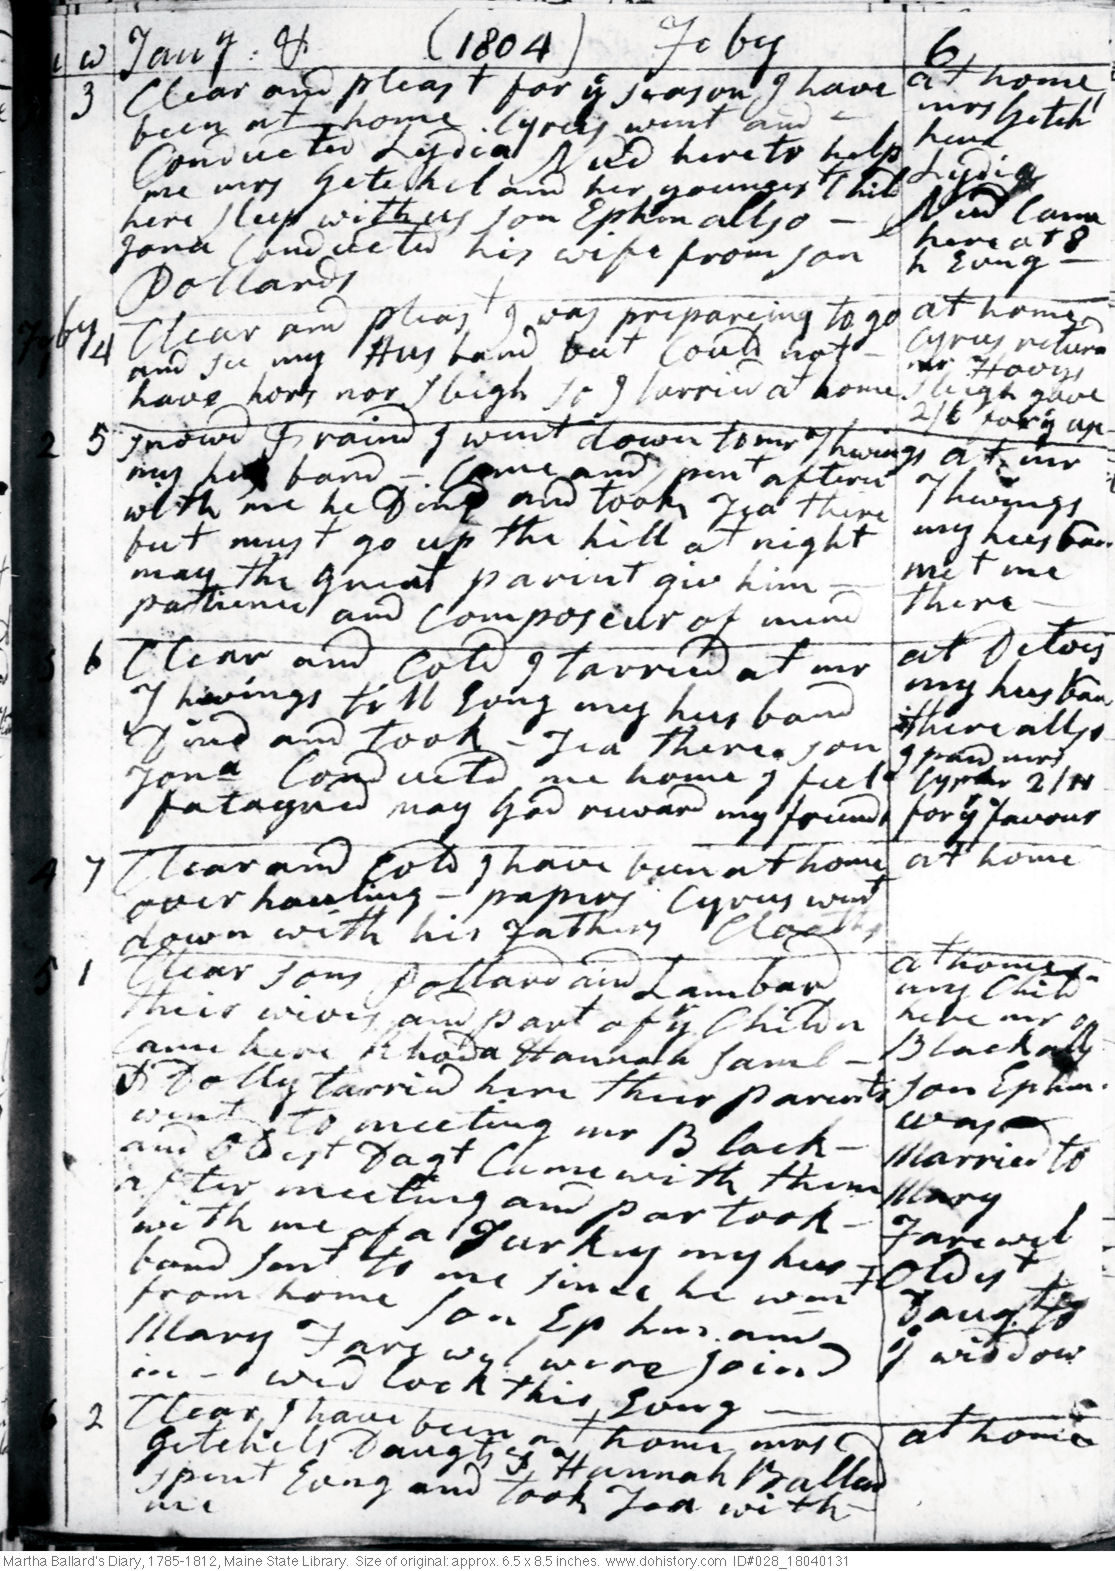 w Jany : & (1804) Feby 6
3 Clear and pleast for ye season I have
been at home. Cyrus went and -
Conducted Lydia Nud here to help
me mrs Getchel and her youngest Child
here sleep with us son Ephm allso -
Jona Conducted his wife from son
Pollards
at home
mrs Getchl
here
Lydia
Nud Came
here at 8
h Evng -
Feby 4 Clear and pleast I was prepareing to go
and see my Husband but Could not -
have hors nor sleigh so I tarried at home
at home
Cyrus return
mr Hoveys
sleigh gave
2/6 for ye up-
2 5 snowd & raind I went down to mr Thwings
my husband - Came and spent aftern
with me he Dind and took Tea there
but must go up the hill at night
may the Great parint giv him -
patience and Composeur of mind
at mr
Thwings
my husban
met me
there -
3 6 Clear and Cold I tarried at mr
Thwings till Evng my husband
Dind and took - Tea there. son
Jona Conducted me home I feel
fatagued may God reward my friends
at Ditois
my husban
there allso
I paid mrs
2/
for ye favour
4 7 Clear and Cold I have been at home
over hauling - papers Cyrus went
down with his Fathers Cloaths
at home
5 1 Clear sons Pollard and Lambard
their wives and part of ye Childn
Came here Rhoda Hannah Saml -
& Dolly tarried here their parents
went to meeting mr Black -
and Oldest Dagt Came with them
after meeting and partook -
with me of a Turkey my hus =
band sent to me since he went
from home son Ephm. and
Mary Farewel were joind
in - wedlock this Evng -
at home
my Child
here mr
Black ally
son Ephm.
was
Married to
Mary
Farewel
Oldest
Daught to
ye widdow
6 2 Clear, I have been at home mrs
Getchels Daughts & Hannah Ballard
spent Evng and took Tea with -
me
at home
Martha Ballard's Diary, 1785-1812, Maine State Library. Size of original: approx. 6.5 x 8.5 inches. www.dohistory.com ID#028_18040131